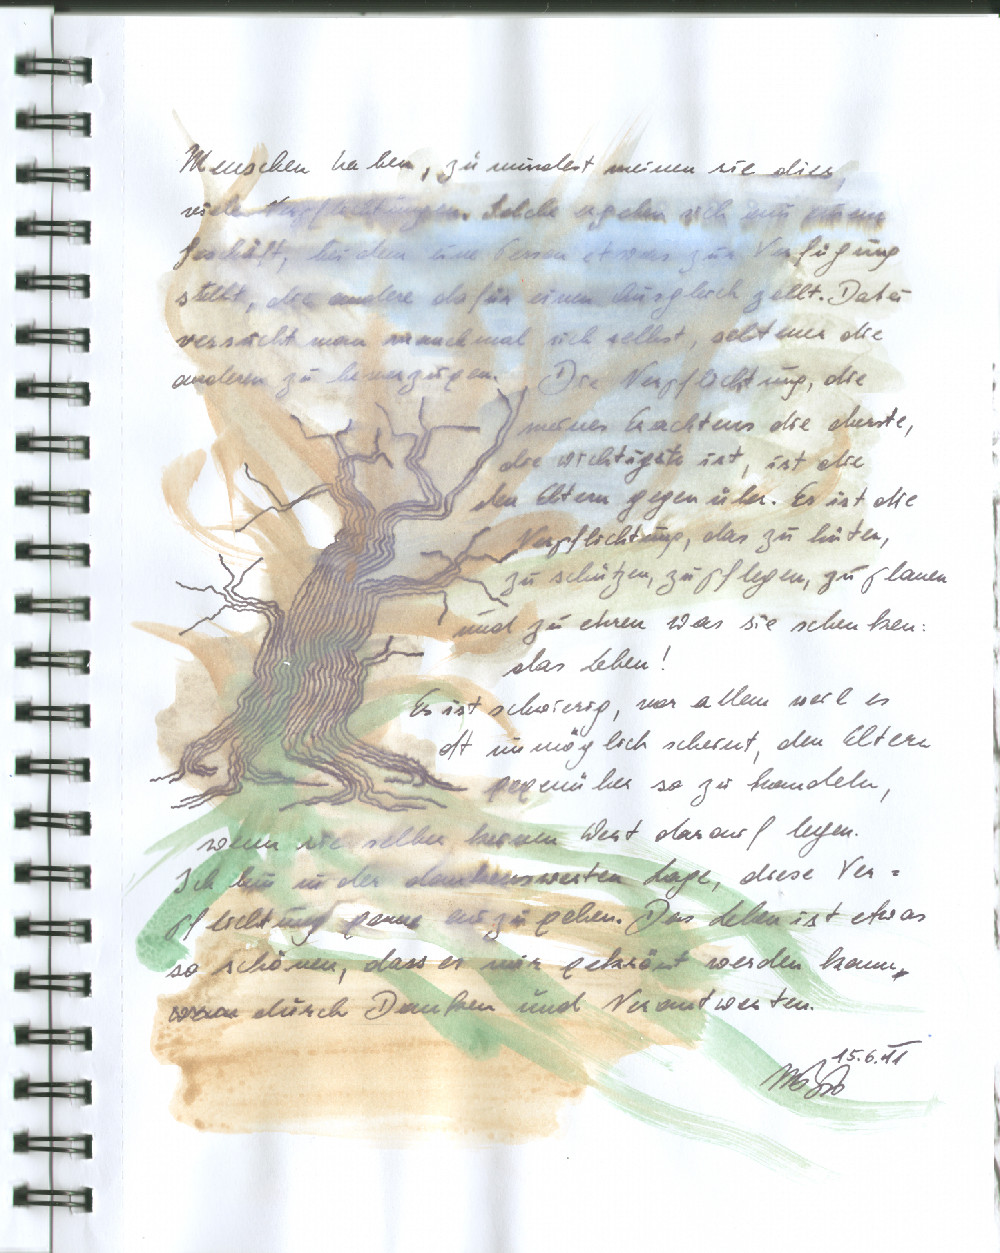 Menschen haben, zumindest meinen sie dies,
viele Verpflichtungen. Solche ergeben sich aus einem
Geschäft, bei dem eine Person etwas zur Verfügung
stellt, die andere dafür einen Ausgleich zollt. Dabei
versucht man manchmal sich selbst, seltener die
anderen zu bevorzugen. Die Verpflichtung, die
meines Erachtens die oberste,
die wichtigste ist, ist die
den Eltern gegenüber. Es ist die
Verpflichtung, das zu hüten,
zu schützen, zu pflegen, zu
und zu ehren was sie schenken:
das Leben!
Es ist schwierig, vor allem weil es
oft unmöglich scheint, den Eltern
gegenüber so zu handeln,
wenn sie selber keinen Wert darauf legen.
Ich bin in der dankenswerten Lage, diese Ver=
pflichtung gerne einzugehen. Das Leben ist etwas
so schönen, dass es nur gekrönt werden kann,
durch Danken und Verantworten.
15.6.11